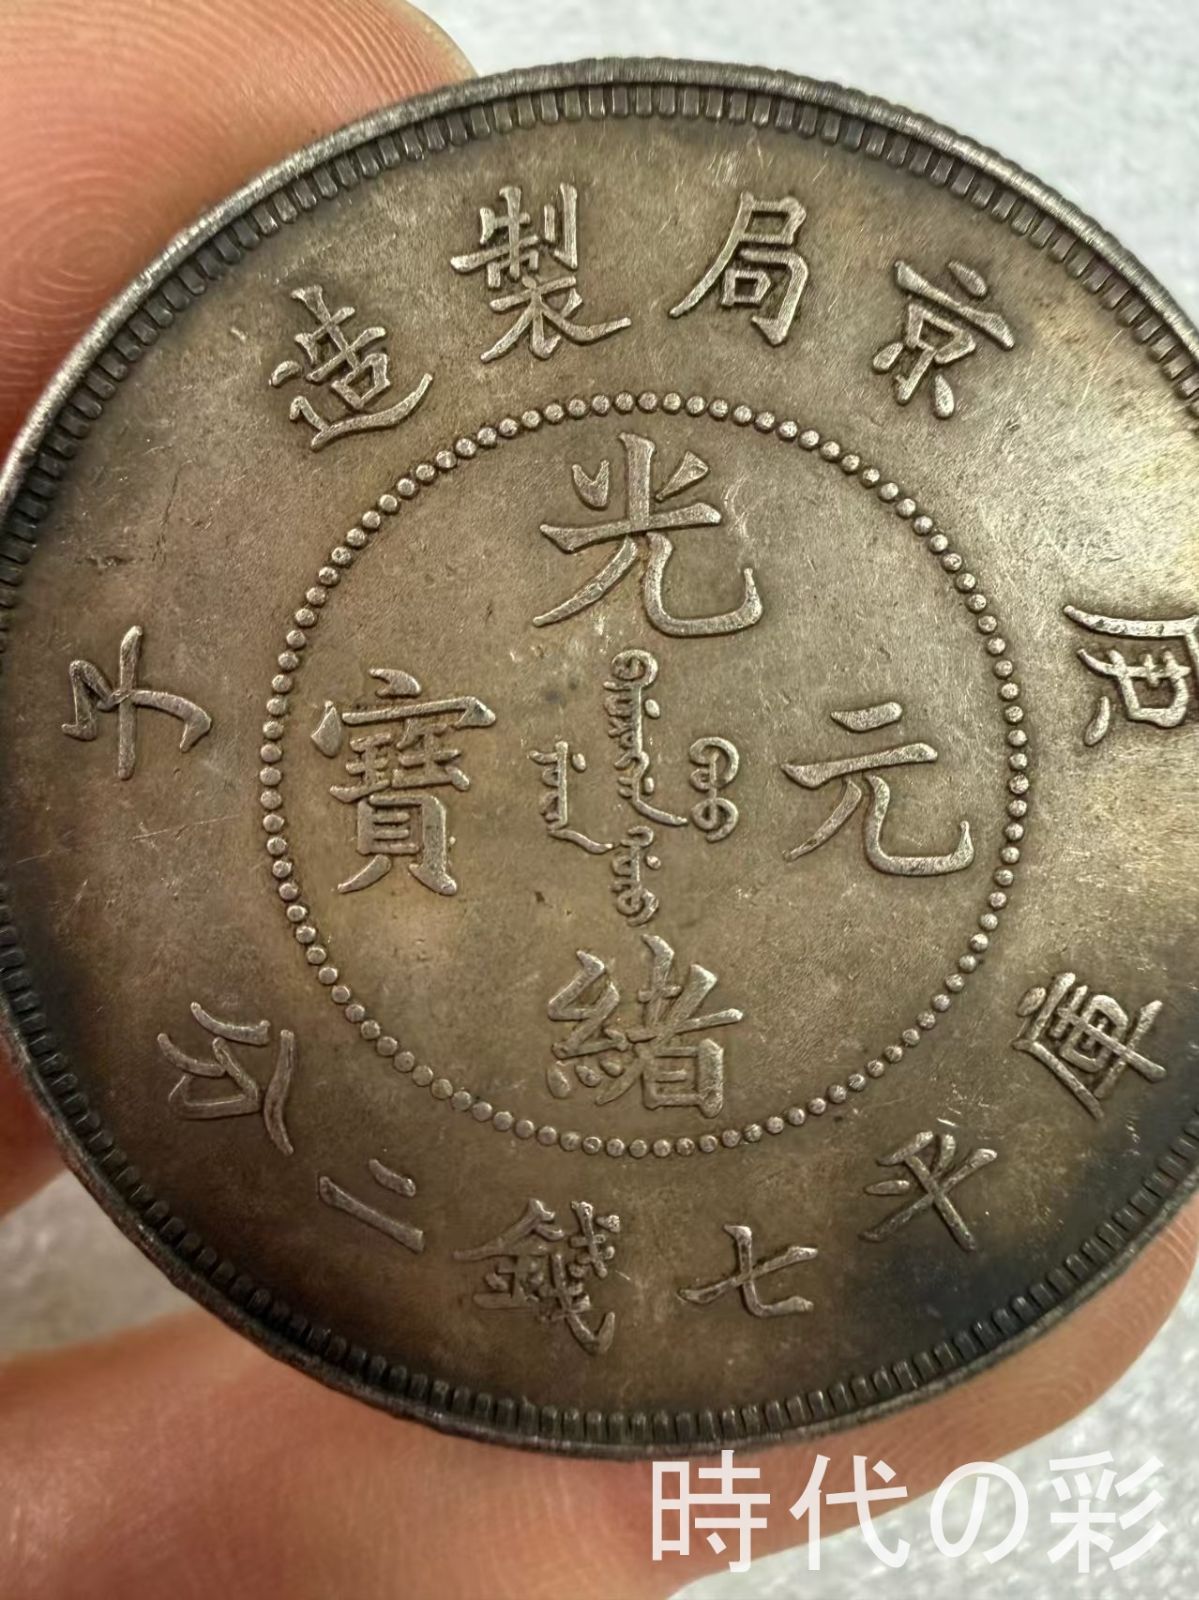 京局製造
庚子
光緒元寶
庫平七錢二分
時代の彩